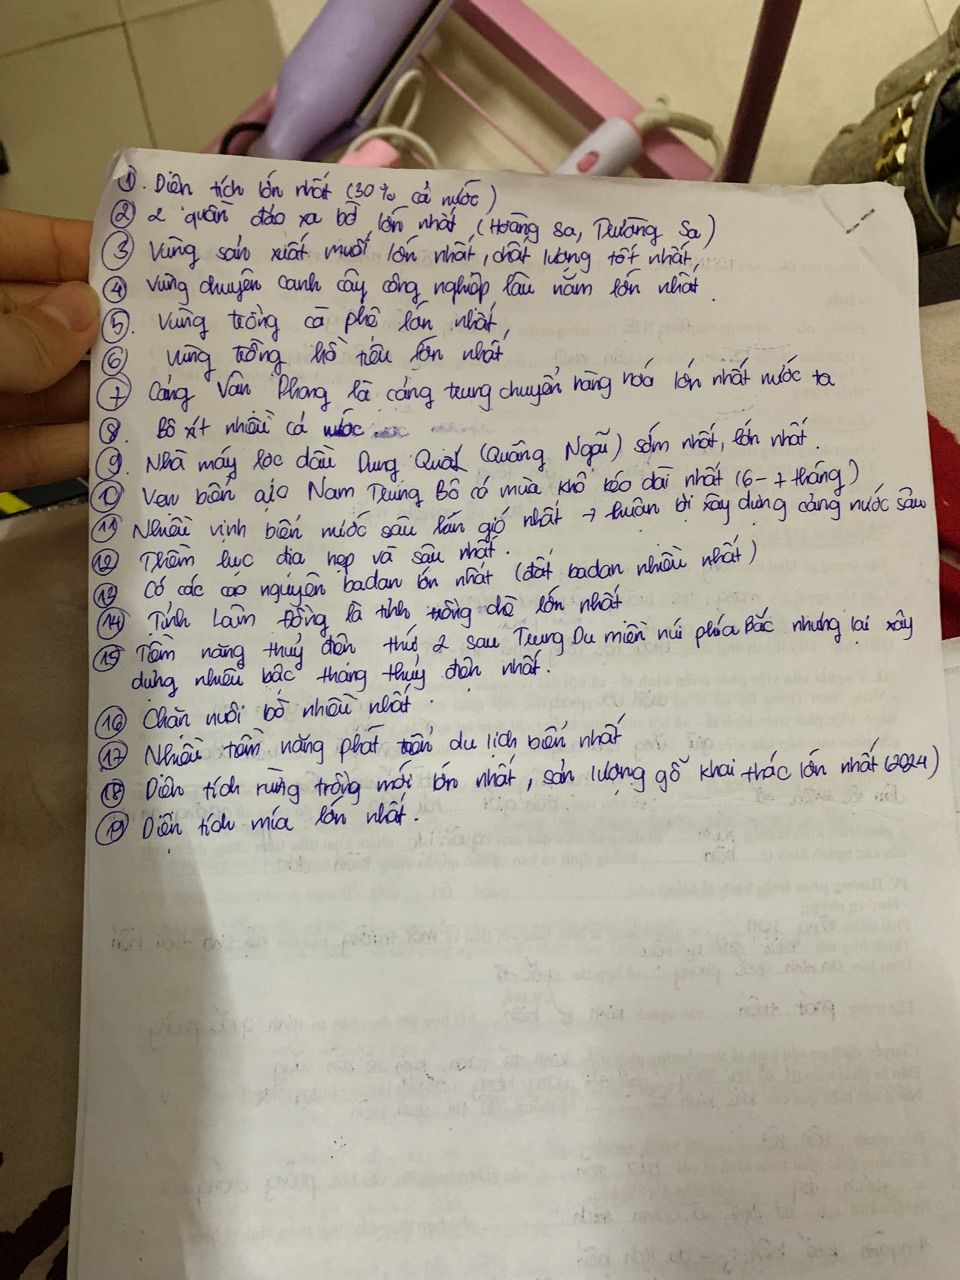 ① . Diện tích lớn nhất (30% cả nước)
② 2 quần đảo xa bờ lớn nhất, (Hoàng Sa, Trường Sa)
③ Vùng sản xuất muối lớn nhất, chất lượng tốt nhất,
④ Vùng chuyên canh cây công nghiệp lâu năm lớn nhất.
⑤. Vùng trồng cà phê lớn nhất,
⑥ Vùng trồng hồ tiêu lớn nhất
⑦ Cảng Vân Phong là cảng trung chuyển hàng hoá lớn nhất nước ta
⑧. Bô xít nhiều cả nước
⑨ Nhà máy lọc dầu Dung Quất (Quảng Ngãi) sớm nhất, lớn nhất.
⑩ Ven biển cực Nam Trung Bộ có mùa khô kéo dài nhất (6 - 7 tháng)
⑪ Nhiều vịnh biển nước sâu kín gió nhất → thuận lợi xây dựng cảng nước sâu
⑫ Thềm lục địa hẹp và sâu nhất.
⑬ Có các cao nguyên badan lớn nhất (đất badan nhiều nhất)
⑭ Tỉnh Lâm Đồng là tỉnh trồng chè lớn nhất
⑮ Tiềm năng thuỷ điện thứ 2 sau Trung Du miền núi phía Bắc nhưng lại xây
dựng nhiều bậc thang thủy điện nhất.
⑯ Chăn nuôi bò nhiều nhất.
⑰ Nhiều tiềm năng phát triển du lịch biển nhất
⑱ Diện tích rừng trồng mới lớn nhất, sản lượng gỗ khai thác lớn nhất (2024)
⑲ Diện tích mía lớn nhất.